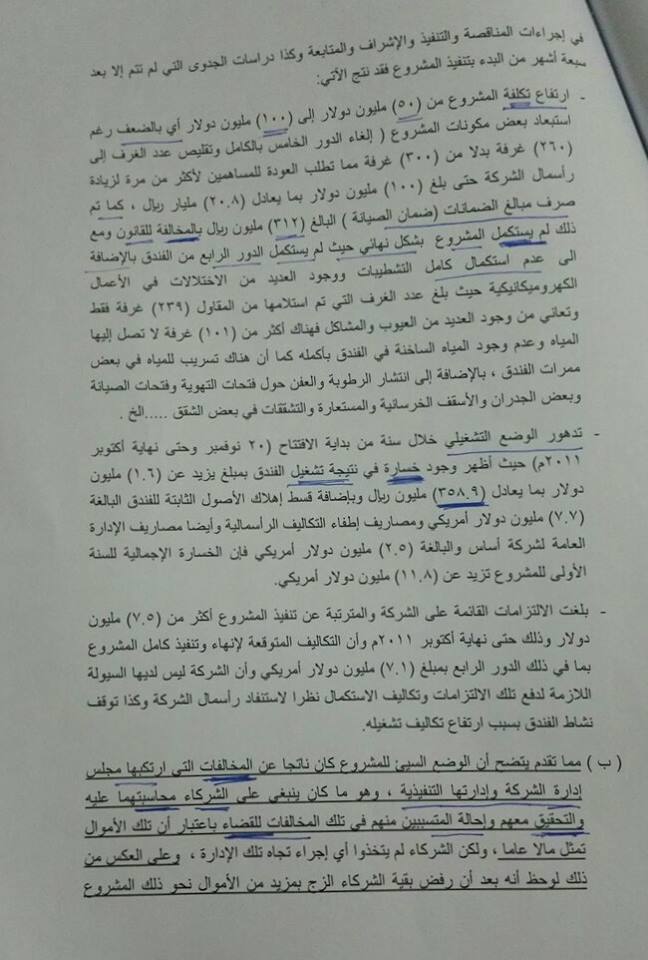 في إجراءات المناقصة والتنفيذ والإشراف والمتابعة وكذا دراسات الجدوى التي لم تتم إلا بعد
سبعة أشهر من البدء بتنفيذ المشروع فقد نتج الآتي:
- ارتفاع تكلفة المشروع من (٥٠) مليون دولار إلى (١٠٠) مليون دولار أي بالضعف رغم
استبعاد بعض مكونات المشروع ( إلغاء الدور الخامس بالكامل وتقليص عدد الغرف إلى
(٢٦٠) غرفة بدلا من (٣٠٠) غرفة مما تطلب العودة للمساهمين لأكثر من مرة لزيادة
رأسمال الشركة حتى بلغ (١٠٠) مليون دولار بما يعادل (٢٠.٨) مليار ريال ، كما تم
صرف مبالغ الضمانات (ضمان الصيانة ) البالغ (٣١٢) مليون ريال بالمخالفة للقانون ومع
ذلك لم يستكمل المشروع بشكل نهائي حيث لم يستكمل الدور الرابع من الفندق بالإضافة
الى عدم استكمال كامل التشطيبات ووجود العديد من الاختلالات في الأعمال
الكهروميكانيكية حيث بلغ عدد الغرف التي تم استلامها من المقاول (٢٣٩) غرفة فقط
وتعاني من وجود العديد من العيوب والمشاكل فهناك أكثر من (١٠١) غرفة لا تصل إليها
المياه وعدم وجود المياه الساخنة في الفندق بأكمله كما أن هناك تسريب للمياه في بعض
ممرات الفندق ، بالإضافة إلى انتشار الرطوبة والعفن حول فتحات التهوية وفتحات الصيانة
وبعض الجدران والأسقف الخرسانية والمستعارة والتشققات في بعض الشقق .....الخ .
- تدهور الوضع التشغيلي خلال سنة من بداية الافتتاح (٢٠ نوفمبر وحتى نهاية أكتوبر
٢٠١١م) حيث أظهر وجود خسارة في نتيجة تشغيل الفندق بمبلغ يزيد عن (١.٦) مليون
دولار بما يعادل (٣٥٨.٩) مليون ريال وبإضافة قسط إهلاك الأصول الثابتة للفندق البالغة
(٧.٧) مليون دولار أمريكي ومصاريف إطفاء التكاليف الرأسمالية وأيضا مصاريف الإدارة
العامة لشركة أساس والبالغة (٢.٥) مليون دولار أمريكي فإن الخسارة الإجمالية للسنة
الأولى للمشروع تزيد عن (١١.٨) مليون دولار أمريكي.
- بلغت الالتزامات القائمة على الشركة والمترتبة عن تنفيذ المشروع أكثر من (٧.٥) مليون
دولار وذلك حتى نهاية أكتوبر ٢٠١١م وأن التكاليف المتوقعة لإنهاء وتنفيذ كامل المشروع
بما في ذلك الدور الرابع بمبلغ (٧.١) مليون دولار أمريكي وأن الشركة ليس لديها السيولة
اللازمة لدفع تلك الالتزامات وتكاليف الاستكمال نظرا لاستنفاد رأسمال الشركة وكذا توقف
نشاط الفندق بسبب ارتفاع تكاليف تشغيله.
(ب) مما تقدم يتضح أن الوضع السيئ للمشروع كان ناتجا عن المخالفات التي ارتكبها مجلس
إدارة الشركة وإدارتها التنفيذية ، وهو ما كان ينبغي على الشركاء محاسبتهما عليه
والتحقيق معهم وإحالة المتسببين منهم في تلك المخالفات للقضاء باعتبار أن تلك الأموال
تمثل مالا عاما ، ولكن الشركاء لم يتخذوا أي إجراء تجاه تلك الإدارة ، وعلى العكس من
ذلك لوحظ أنه بعد أن رفض بقية الشركاء الزج بمزيد من الأموال نحو ذلك المشروع